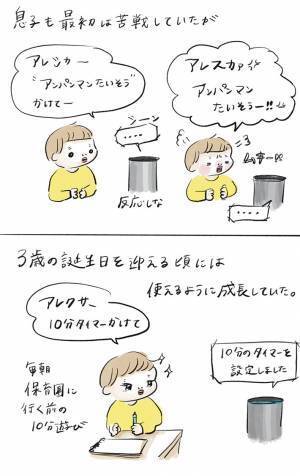 息子も最初は苦戦していたが
アレジカー
"アンパンマンたいそう"
かけてー
シーン
・・・・
反応しな
アレスカァ
アンパンマン
たいそうー!!
・・・・
3歳の誕生日を迎える頃には
使えるように成長していた。
アレクサー
10分タイマーかけて
毎朝
保育園に
行く前の
10分遊び
10分のタイマーを
設定しました